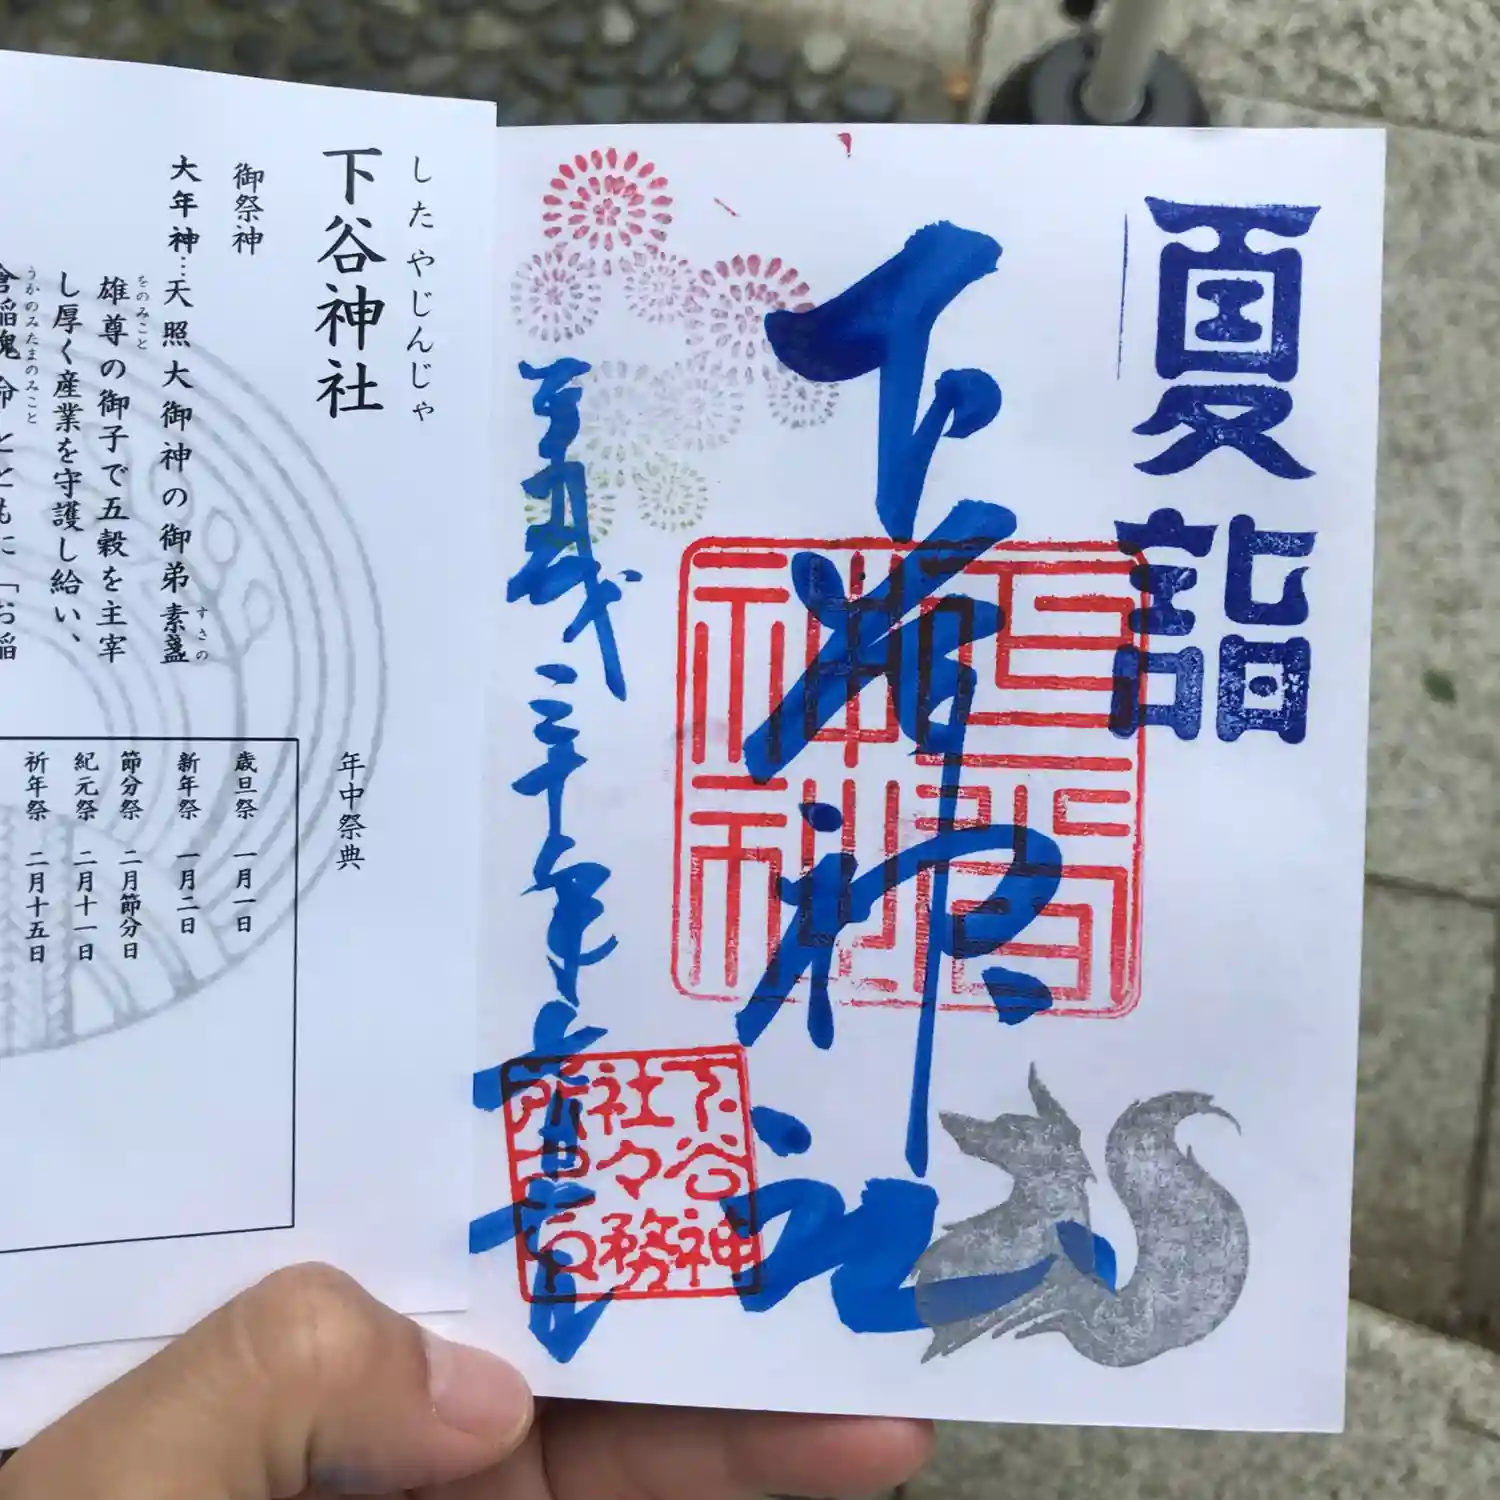 夏詣
下谷神社
平成三十年六月三十日
下谷神
社々務
所之印
したやじんじゃ
下谷神社
御祭神
大年神…天照大御神の御弟素盞
すさの
をのみこと
雄尊の御子で五穀を主宰
し厚く産業を守護し給い、
うかのみたまのみこと
倉稲魂命とともに「お稲
年中祭典
歳旦祭 一月一日
新年祭 一月二日
節分祭 二月節分日
紀元祭 二月十一日
祈年祭 二月十五日